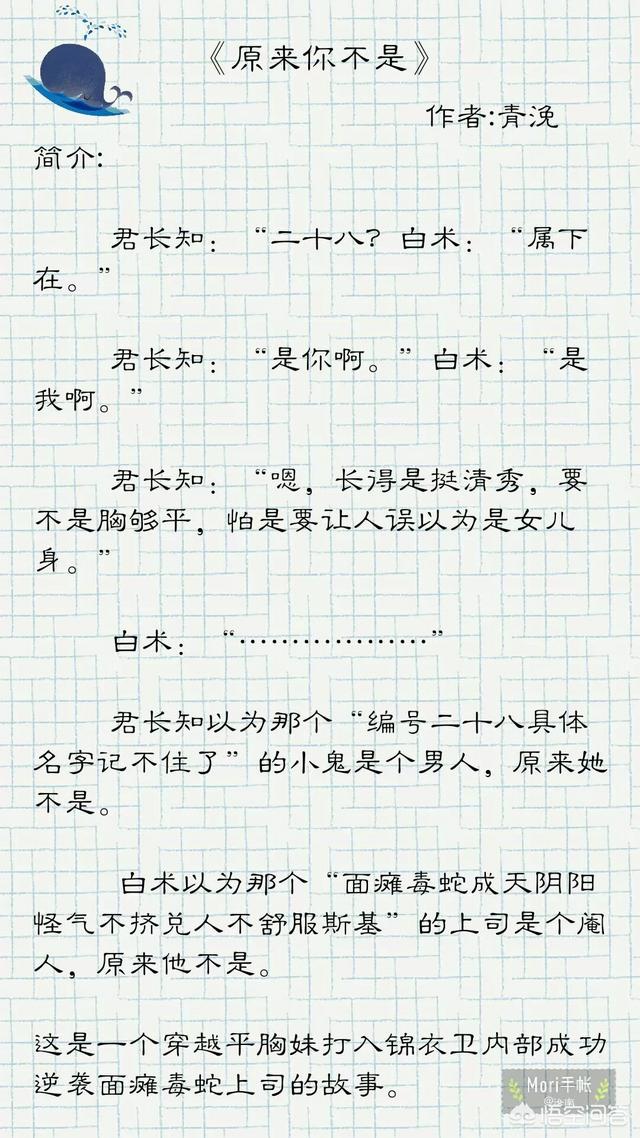 《原来你不是》
作者:青浼
简介:
君长知：“二十八？白术：“属下
在。”
君长知：“是你啊。”白术：“是
我啊。”
君长知：“嗯，长得是挺清秀，要
不是胸够平，怕是要让人误以为是女儿
身。”
白术：“………………”
君长知以为那个“编号二十八具体
名字记不住了”的小鬼是个男人，原来她
不是。
白术以为那个“面瘫毒蛇成天阴阳
怪气不挤兑人不舒服斯基”的上司是个阉
人，原来他不是。
这是一个穿越平胸妹打入锦衣卫内部成功
逆袭面瘫毒蛇上司的故事。
Mori手帐
悟空问答